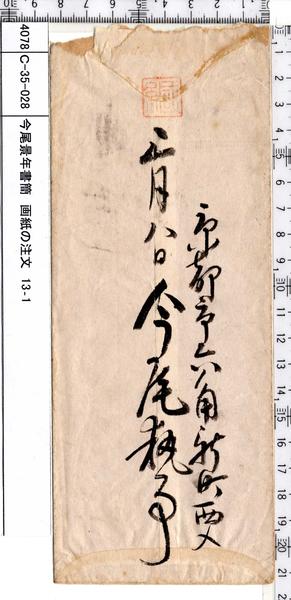 4078 C-35-028 今尾景年書簡 画紙の注文 13-1
京都市六角新町西入
正月八日 今尾執事